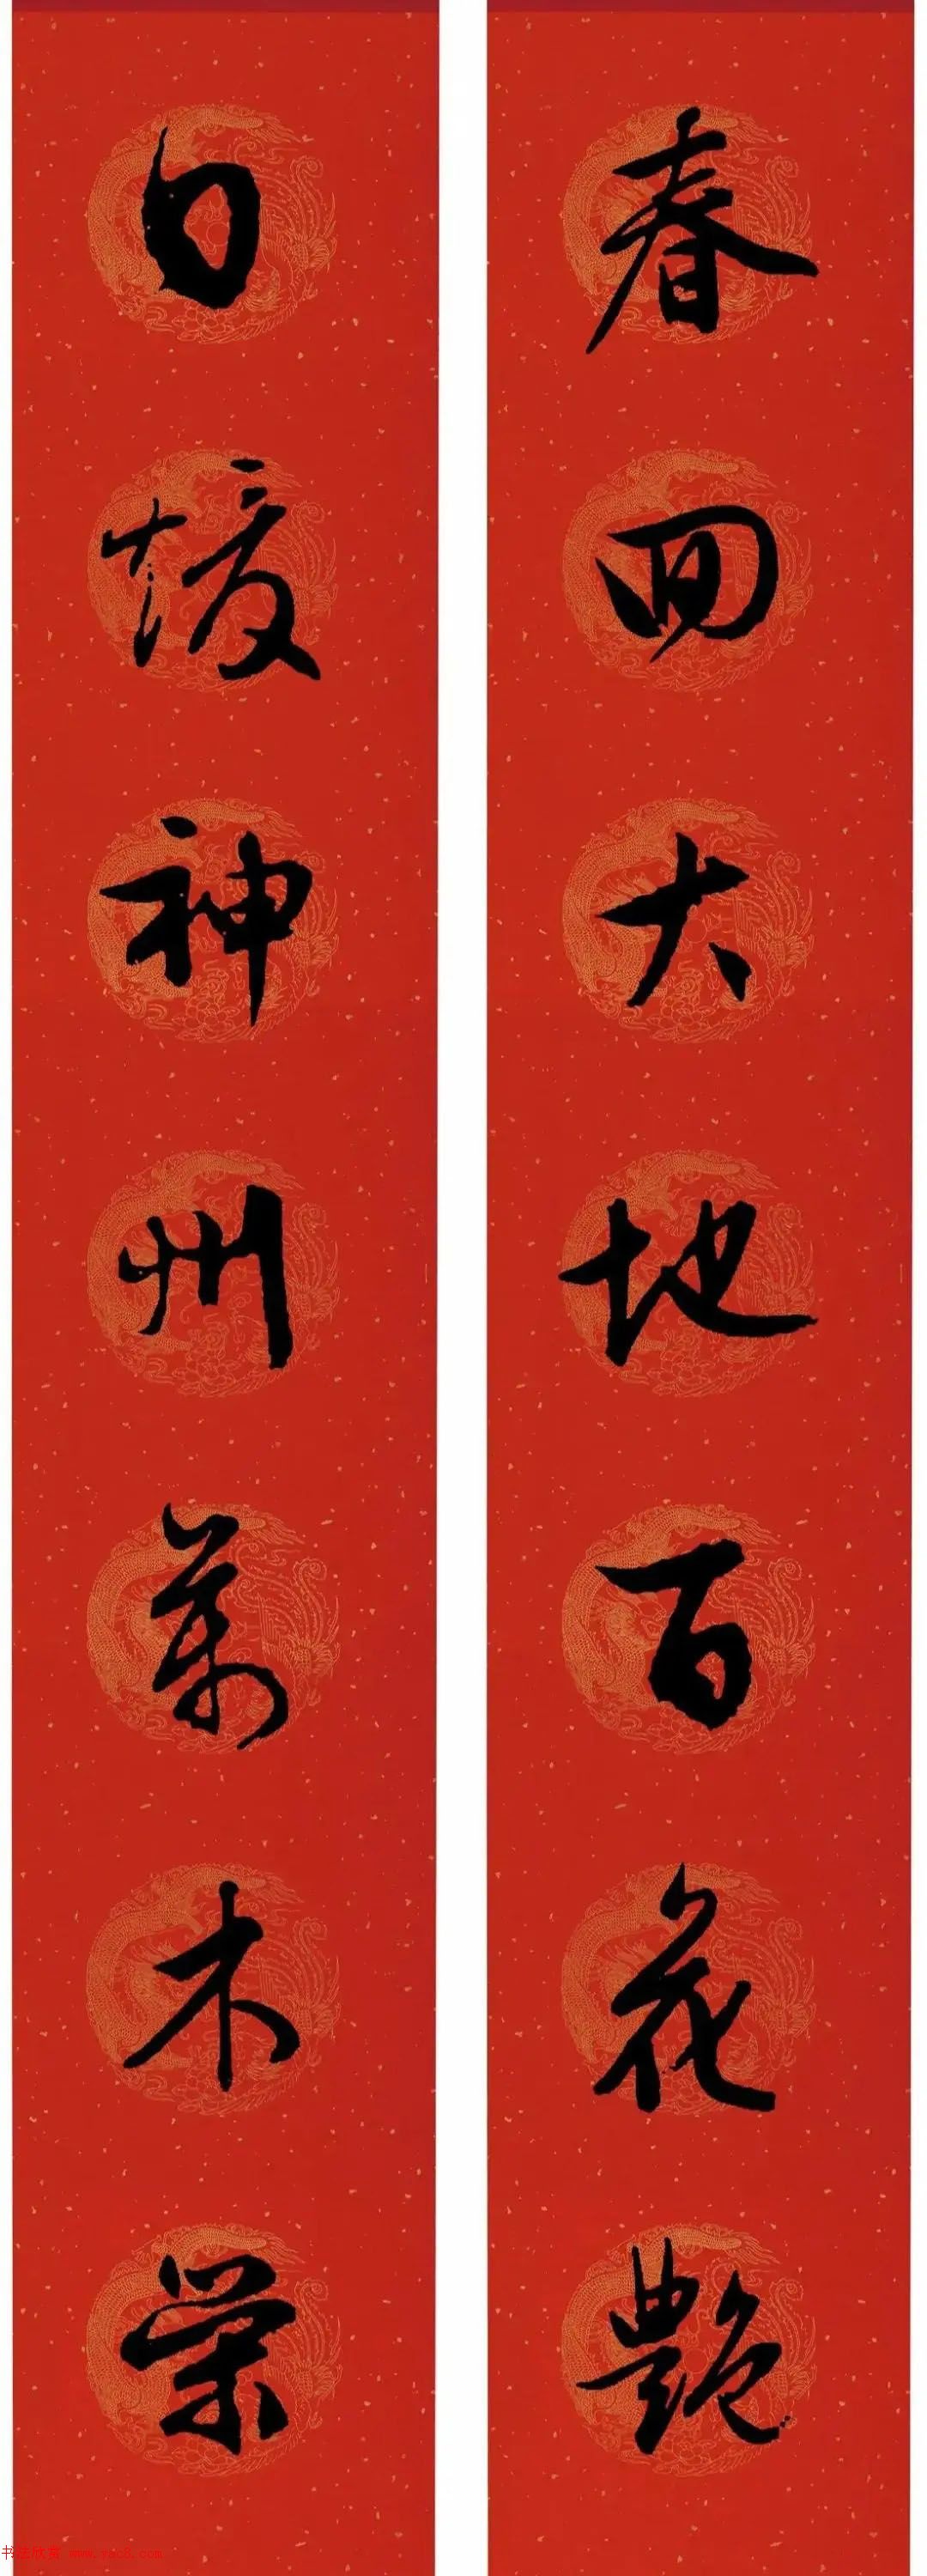 春回大地百花艳
日暖神州万木荣
书法欣赏 www.yac8.com